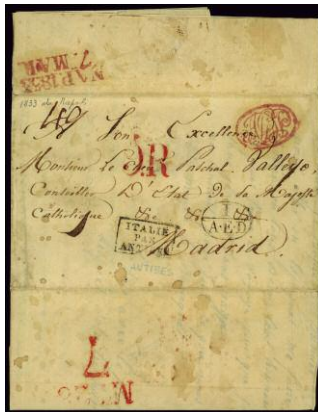 NAP 1833
7. MAR
1833 de Napol
A Son Excellence
9R
Monsieur le Paschal Vallejo,
Conseiller D'Etat De la Majesté
Catholique &a &a &a
A.E.D
ITALIE
PAR
ANTIBES
Madrid.
ANTIBES
7